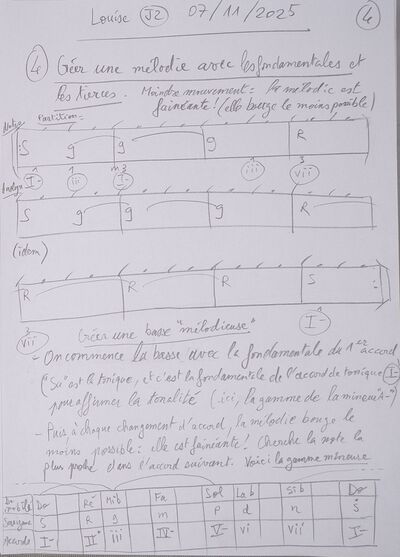 Louise J2 07/11/2025 4
4 Créer une mélodie avec les fondamentales et
les tierces. Moindre mouvement = la mélodie est
fainéante! (elle bouge le moins possible)
Partition:
S g g g R
1 1 m3 1 3
I- iii I- iii vii
S g g g R
(idem)
R R R S
3 1
vii I-
Créer une basse "mélodieuse"
- On commence la basse avec la fondamentale du 1er accord
("Sa" est la tonique, et c'est la fondamentale de l'accord de tonique I-
pour affirmer la tonalité (ici, la gamme de la mineur "A-")
- Puis à chaque changement d'accord, la mélodie bouge le
moins possible: elle est fainéante! Cherche la note la
plus proche dans l'accord suivant. Voici la gamme mineure
Do mobile Do Ré Mib Fa Sol Lab Sib Do
Sargame S R g m P d n S
Accords I- II° iii IV- V- vi vii I-